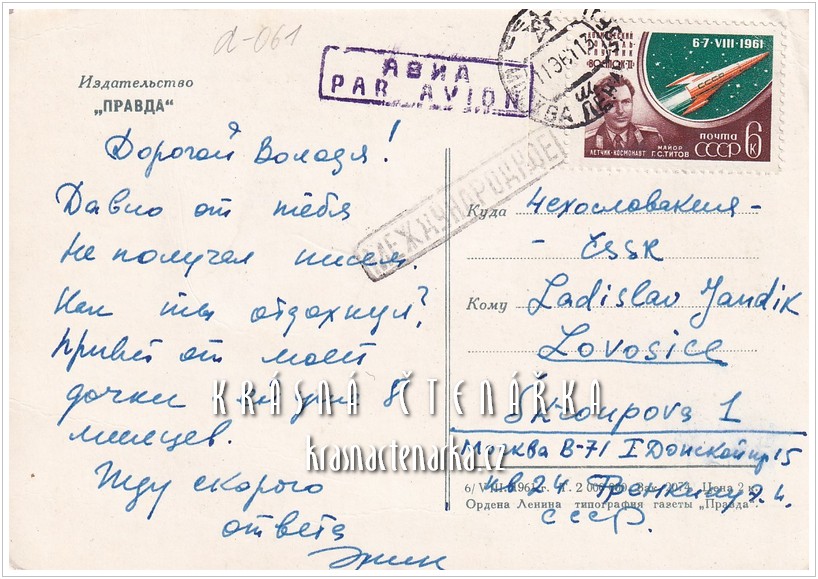 d-061
Издательство
„ПРАВДА“
АВИА
PAR AVION
МЕЖДУНАРОДНОЕ
МОСКВА
6-7·VIII·1961
ВОСТОК-II
ЛЕТЧИК-КОСМОНАВТ
МАЙОР
Г.С.ТИТОВ
ПОЧТА
СССР 6к
Дорогой Володя!
Давно от тебя
не получал писем.
Как ты отдохнул?
Привет от моей
дочки
месяцев.
Жду скорого
ответа
Эрик
Куда Чехословакия -
- ČSSR
Кому Ladislav Jandik
Lovosice
Škroupova 1
Москва В-71 I Донской пр 15
кв 24 Френкину Э. А.
СССР.
6/VIII 1961 г. Т. 2 000 000. Зак. 2074. Цена 2 к.
Ордена Ленина типография газеты „Правда“.
KRÁSNÁ ČTENÁŘKA
krasnactenarka.cz